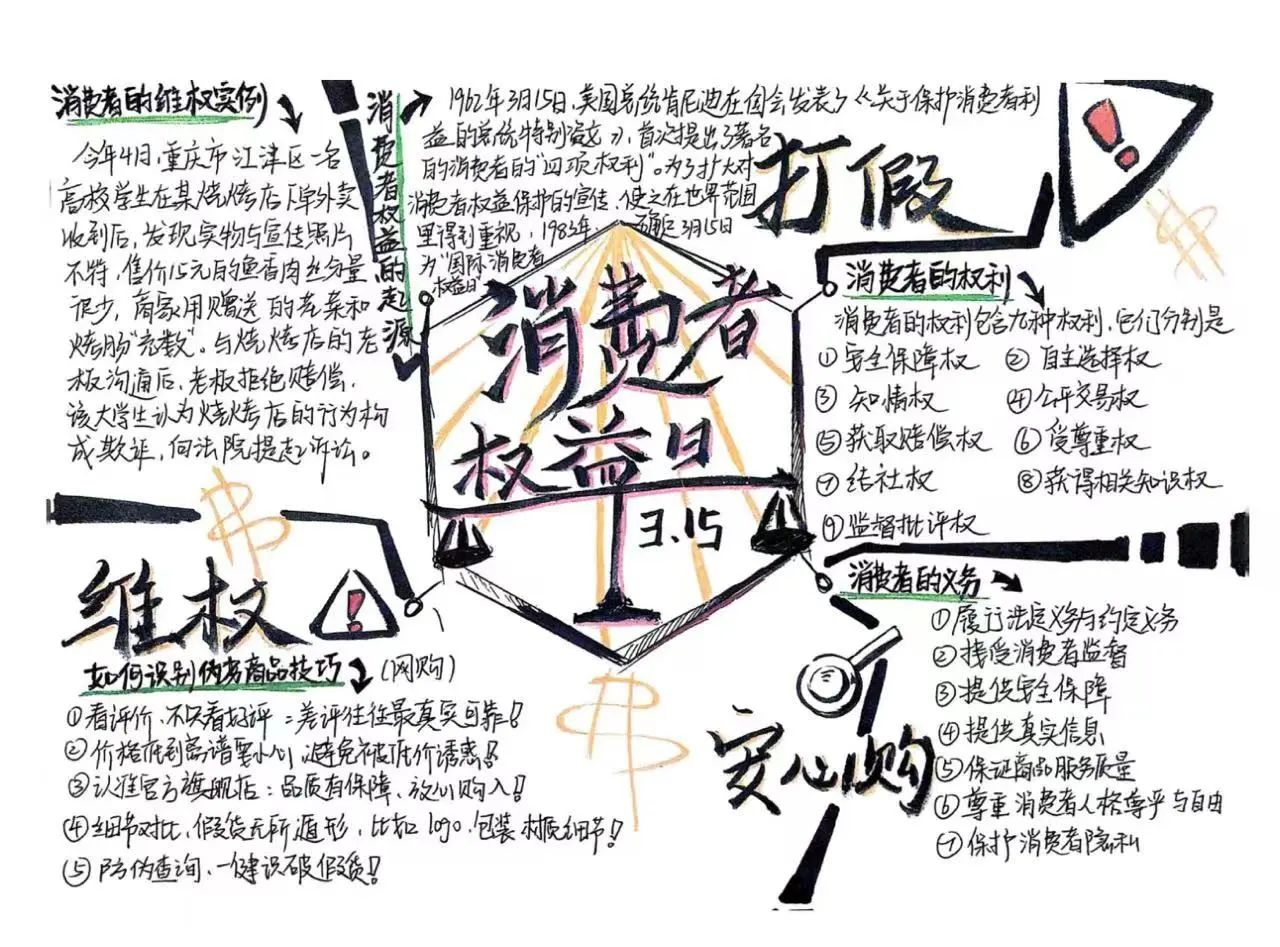 消费者的维权实例
今年4月,重庆市江津区一名
高校学生在某烧烤店下单外卖
收到后,发现实物与宣传照片
不符,售价15元的鱼香肉丝分量
很少,商家用赠送的老菜和
烤肠“充数”。与烧烤店的老
板沟通后,老板拒绝赔偿.
该大学生认为烧烤店的行为构
成欺诈,向法院提起诉讼。
消费者权益的起源
1962年3月15日,美国总统肯尼迪在国会发表了《关于保护消费者利
益的总统特别咨文》,首次提出了著名
的消费者的“四项权利”。为了扩大对
消费者权益保护的宣传、使之在世界范围
里得到重视,1983年 确定3月15日
为“国际消费者
权益日”
打假
消费者
权益日
3.15
消费者的权利
消费者的权利包含九种权利,它们分别是
①安全保障权 ②自主选择权
③知情权 ④公平交易权
⑤获取赔偿权 ⑥受尊重权
⑦结社权 ⑧获得相关知识权
⑨监督批评权
维权
如何识别伪劣商品技巧 (网购)
①看评价,不只看好评:差评往往最真实可靠!
②价格低到离谱要小心,避免被低价诱惑!
③认准官方旗舰店:品质有保障、放心购入!
④细节对比,假货无所遁形,比如logo.包装.材质细节!
⑤防伪查询,一键识破假货!
消费者的义务
①履行法定义务与约定义务
②接受消费者监督
③提供安全保障
④提供真实信息
⑤保证商品服务质量
⑥尊重消费者人格尊严与自由
⑦保护消费者隐私
安心购